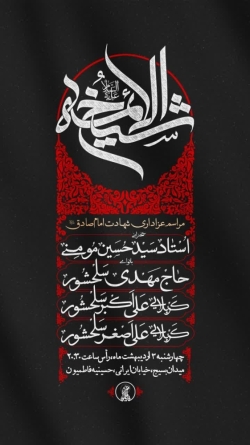 شیخ الائمه
علیه السلام
مراسم عزاداری شهادت امام صادق
سخنران
استاد سید حسین مومنی
بانوای
حاج مهدی سلحشور
کربلایی علی اکبر سلحشور
کربلایی علی اصغر سلحشور
چهارشنبه ۳ اردیبهشت ماه، راس ساعت ۲۰:۳۰
میدان بسیج، خیابان ایرانی، حسینیه فاطمیون